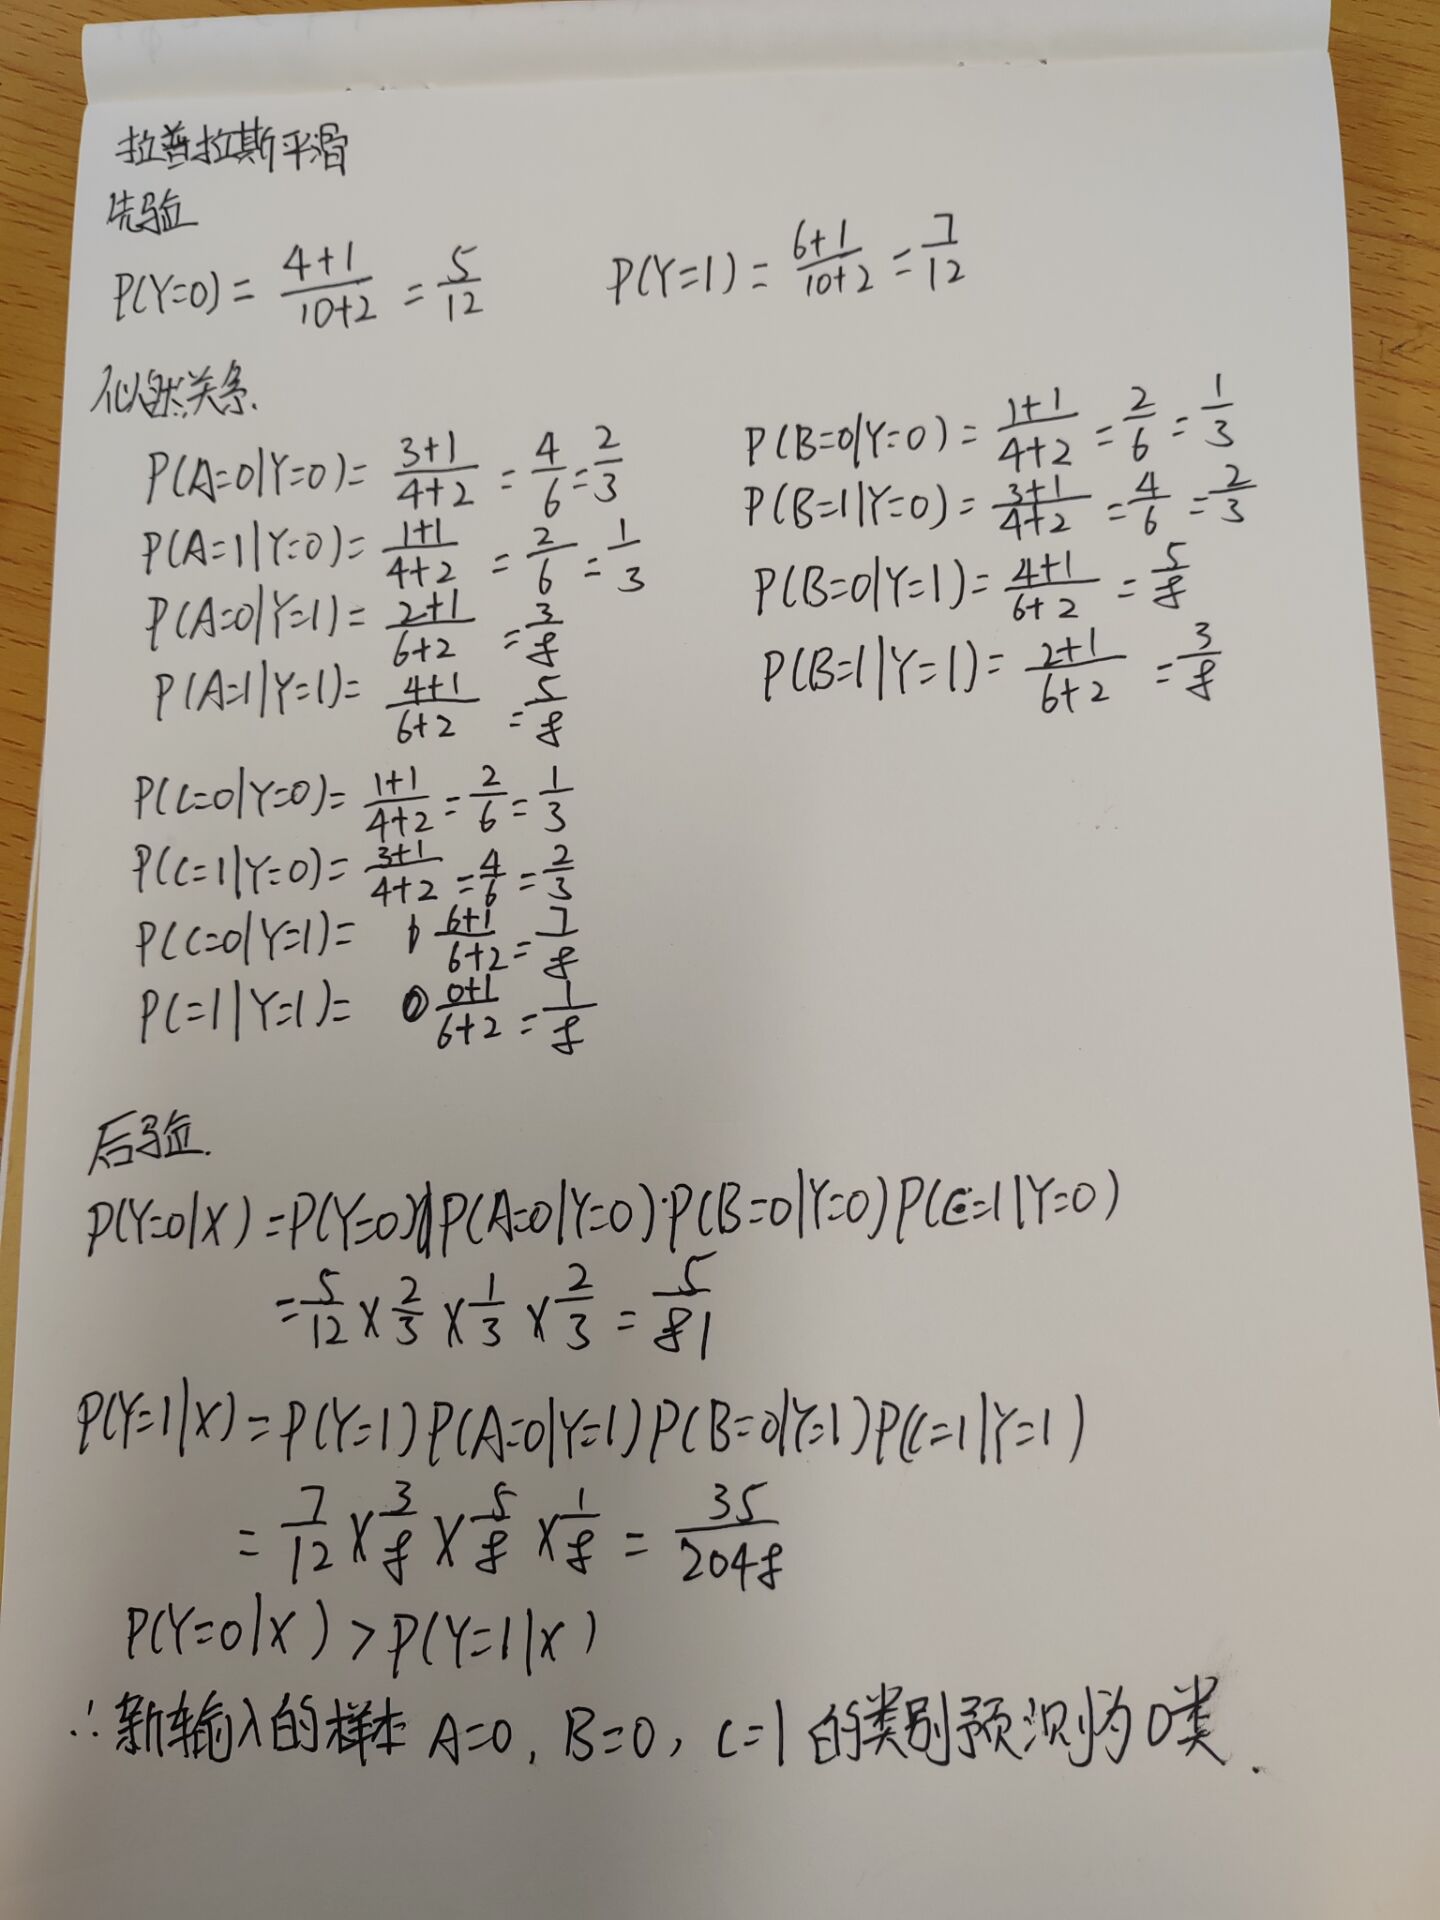 拉普拉斯平滑
先验
P(Y=0) = \frac{4+1}{10+2} = \frac{5}{12} P(Y=1) = \frac{6+1}{10+2} = \frac{7}{12}
似然关系.
P(A=0|Y=0) = \frac{3+1}{4+2} = \frac{4}{6} = \frac{2}{3} P(B=0|Y=0) = \frac{1+1}{4+2} = \frac{2}{6} = \frac{1}{3}
P(A=1|Y=0) = \frac{1+1}{4+2} = \frac{2}{6} = \frac{1}{3} P(B=1|Y=0) = \frac{3+1}{4+2} = \frac{4}{6} = \frac{2}{3}
P(A=0|Y=1) = \frac{2+1}{6+2} = \frac{3}{8} P(B=0|Y=1) = \frac{4+1}{6+2} = \frac{5}{8}
P(A=1|Y=1) = \frac{4+1}{6+2} = \frac{5}{8} P(B=1|Y=1) = \frac{2+1}{6+2} = \frac{3}{8}
P(C=0|Y=0) = \frac{1+1}{4+2} = \frac{2}{6} = \frac{1}{3}
P(C=1|Y=0) = \frac{3+1}{4+2} = \frac{4}{6} = \frac{2}{3}
P(C=0|Y=1) = \frac{6+1}{6+2} = \frac{7}{8}
P(C=1|Y=1) = \frac{0+1}{6+2} = \frac{1}{8}
后验.
P(Y=0|X) = P(Y=0) P(A=0|Y=0)·P(B=0|Y=0)P(C=1|Y=0)
= \frac{5}{12} × \frac{2}{3} × \frac{1}{3} × \frac{2}{3} = \frac{5}{81}
P(Y=1|X) = P(Y=1)P(A=0|Y=1)P(B=0|Y=1)P(C=1|Y=1)
= \frac{7}{12} × \frac{3}{8} × \frac{5}{8} × \frac{1}{8} = \frac{35}{2048}
P(Y=0|X) > P(Y=1|X)
∴新输入的样本 A=0, B=0, C=1 的类别预测为0类.